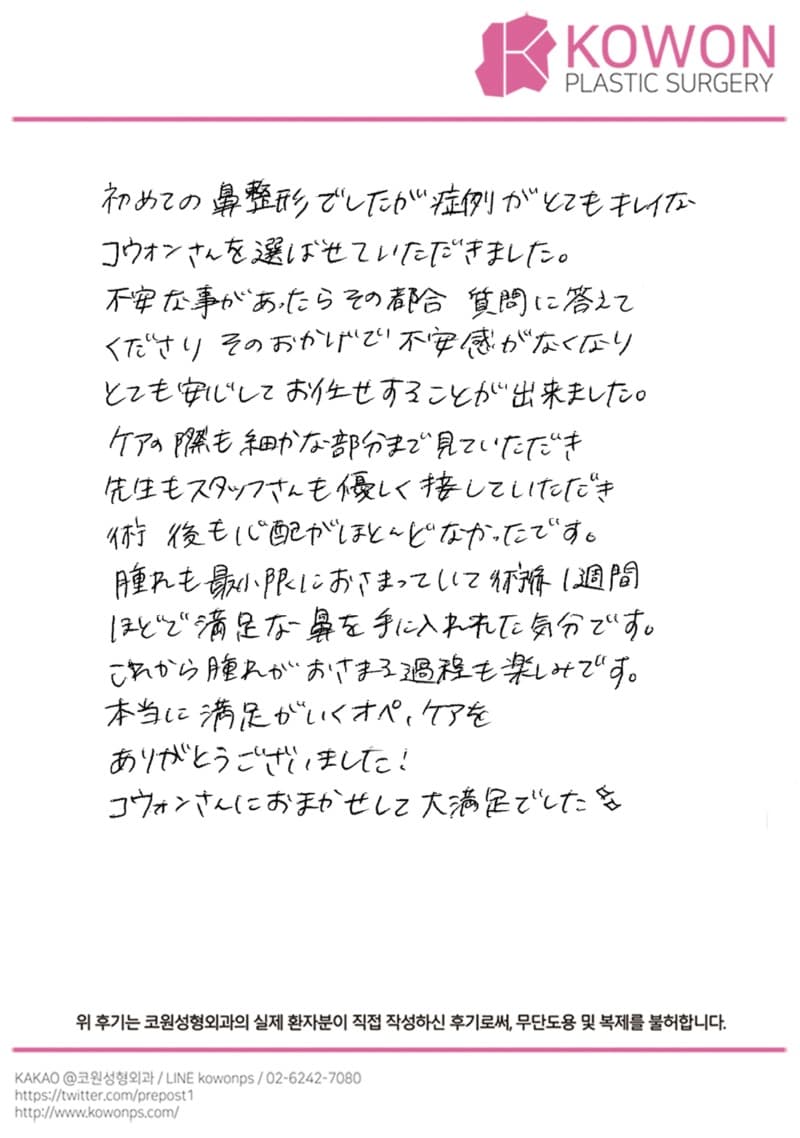 KOWON
PLASTIC SURGERY
初めての鼻整形でしたが症例がとてもキレイな
コウォンさんを選ばせていただきました。
不安な事があったらその都合 質問に答えて
くださり そのおかげで不安感がなくなり
とても安心してお任せすることが出来ました。
ケアの際も細かな部分まで見ていただき
先生もスタッフさんも優しく接していただき
術後も心配がほとんどなかったです。
腫れも最小限におさまっていて術後1週間
ほどで満足な鼻を手に入れれた気分です。
これから腫れがおさまる過程も楽しみです。
本当に満足がいくオペ、ケアを
ありがとうございました!
コウォンさんにおまかせして大満足でした
위 후기는 코원성형외과의 실제 환자분이 직접 작성하신 후기로써, 무단도용 및 복제를 불허합니다.
KAKAO @코원성형외과 / LINE kowonps / 02-6242-7080
https://twitter.com/prepost1
http://www.kowonps.com/